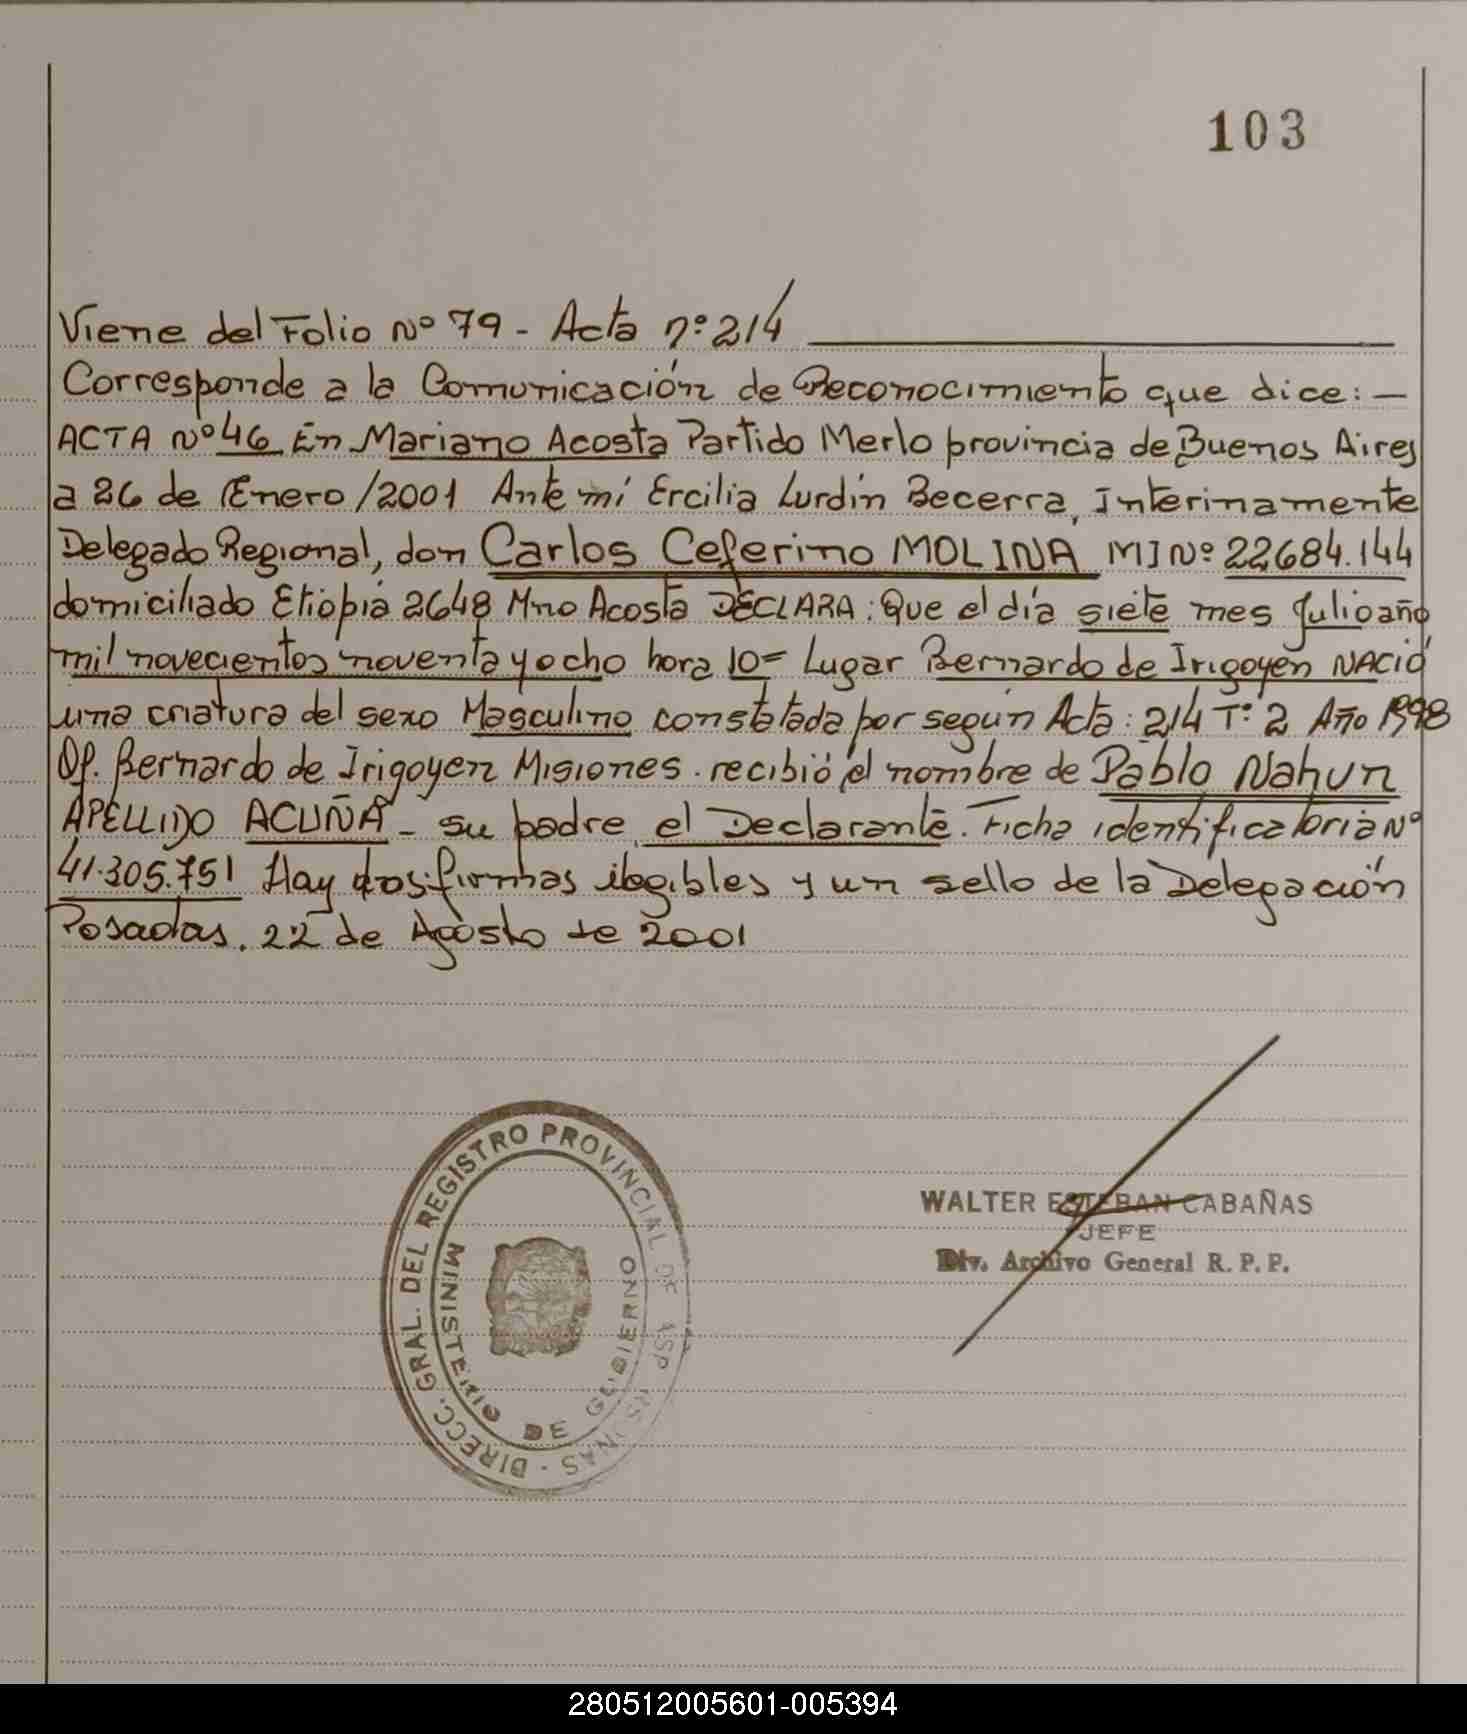 103
Viene del Folio Nº 79 - Acta nº 214
Corresponde a la Comunicación de Reconocimiento que dice: -
ACTA Nº 46 En Mariano Acosta Partido Merlo provincia de Buenos Aires
a 26 de Enero /2001 Ante mí Ercilia Lurdin Becerra, Interinamente
Delegado Regional, don Carlos Ceferino MOLINA MI Nº 22684.144
domiciliado Etiopia 2648 Mno Acosta DECLARA: Que el día siete mes Julio año
mil novecientos noventa y ocho hora 10= Lugar Bernardo de Irigoyen NACIO
una criatura del sexo Masculino constatada por según Acta: 214 Tº 2 Año 1998
Of. Bernardo de Irigoyen Misiones. recibió el nombre de Pablo Nahun
APELLIDO ACUÑA - su padre el Declarante. Ficha identificatoria Nº
41.305.751 Hay dos firmas ilegibles y un sello de la Delegación
Posadas. 22 de Agosto de 2001
DIRECC. GRAL. DEL REGISTRO PROVINCIAL DE
MINISTERIO DE GOBIERNO
WALTER ESTEBAN CABAÑAS
JEFE
Div. Archivo General R. P. P.
280512005601-005394